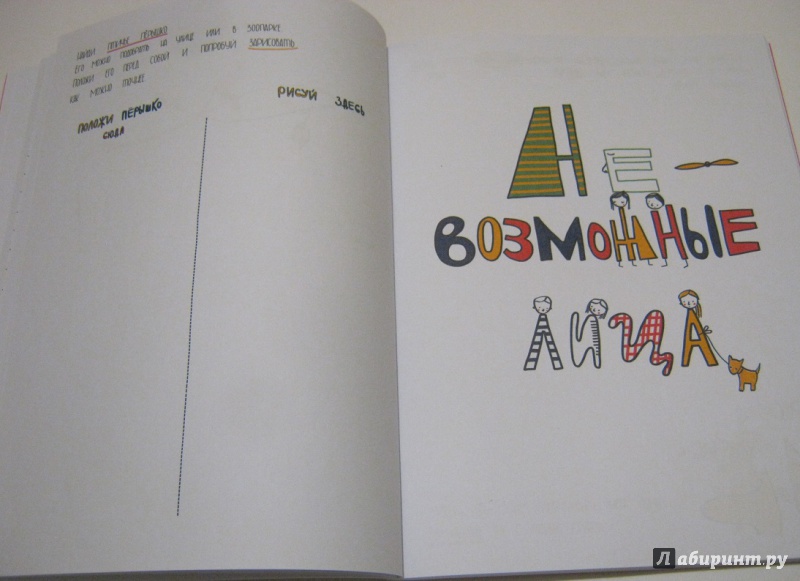 НАЙДИ ПТИЧЬЕ ПЁРЫШКО
ЕГО МОЖНО ПОДОБРАТЬ НА УЛИЦЕ ИЛИ В ЗООПАРКЕ
ПОЛОЖИ ЕГО ПЕРЕД СОБОЙ И ПОПРОБУЙ ЗАРИСОВАТЬ
КАК МОЖНО ТОЧНЕЕ
ПОЛОЖИ ПЁРЫШКО
СЮДА
РИСУЙ ЗДЕСЬ
НЕ-
ВОЗМОЖНЫЕ
ЛИЦА
Лабиринт.ру